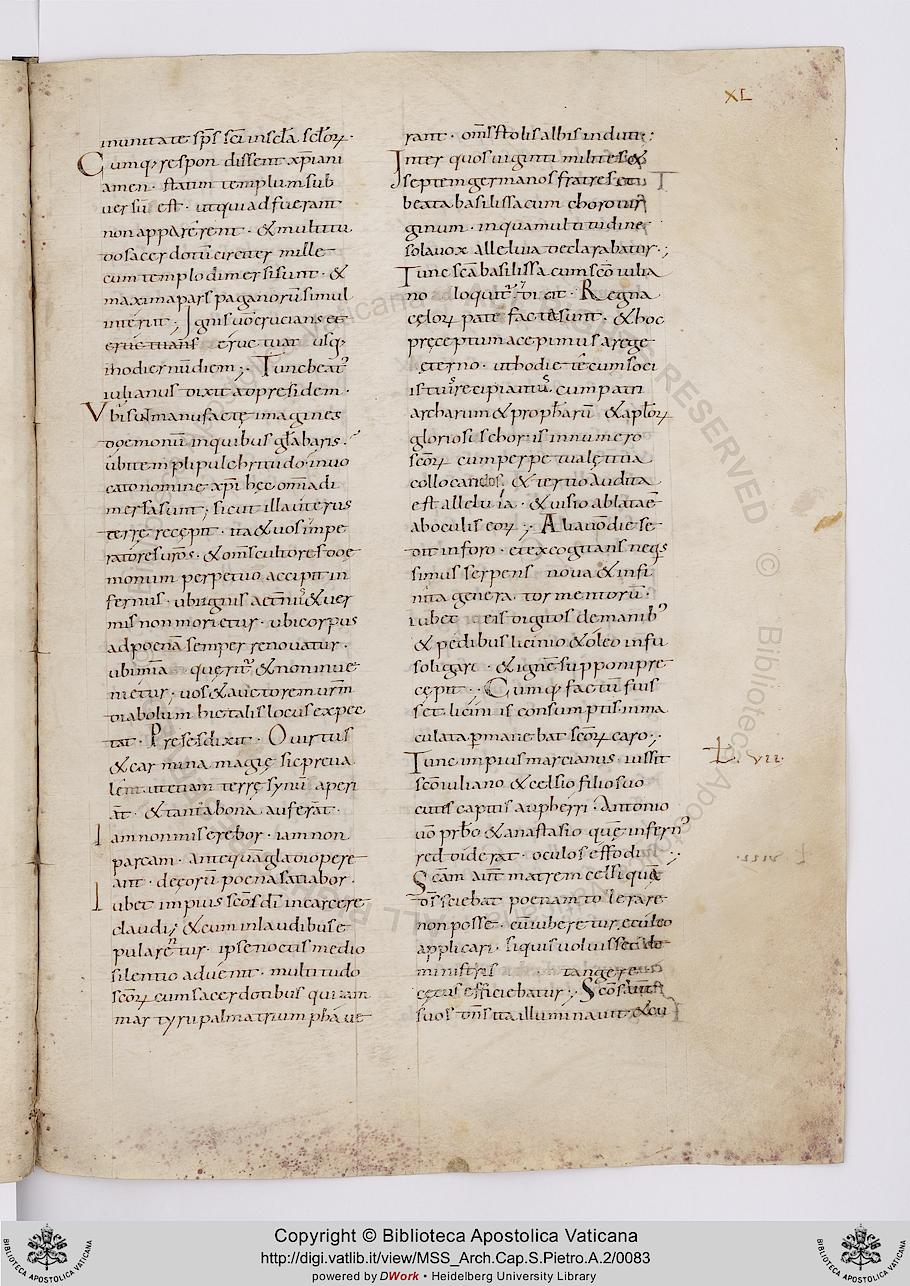 XL
inunitate sps sci inscla sclor.
Cumq; respondissent xpiani
amen. statim templum sub
uersu est. ut qui adfuerant
non apparerent. & multitu
do sacerdotu circiter mille
cum templo dimersi sunt. &
maxima pars paganoru simul
interiit; Ignis uo crucians et
usq;
in hodiernu diem; Tunc beat
iulianus dixit ad presidem.
Ubi st manu facte imagines
doemonu in quibus glabaris.
ubi templi pulchritudo inuo
cato nomine xpi hec omia di
mersa sunt; sicut illa uiterus
terre recepit. ita & uos impe
ratores uros. & oms cultores doe
monum perpetuo accipit in
fernus. ubi ignis aetnus & uer
mis non morietur. ubi corpus
ad poena semper renouatur.
ubi mia queritr & non inue
nietur. uos & auctorem urm
diabolum hic talis locus expec
tat. Preses dixit. O uirtus
& carmina magie sic preua
lent ut etiam terre synu aperi
at. & tanta bona auferat.
Iam non miserebor. iam non
parcam. antequa gladio pere
ant. decoru poena satiabor.
Iubet impius scos di in carcere
claudi; & cum in laudibus e
pularentur. ipse noctis medio
silentio aduenit. multitudo
scor cum sacerdotibus qui iam
martyru palma trium pha ue
rant. oms stolis albis induti:
Inter quos uiginti milites &
septem germanos fratres et
beata basilissa cum choro uir
ginum. in qua multitudine
sola uox alleluia declarabatur;
Tunc sca basilissa cum sco iulia
no loquitr di cit. Regna
celor pate facta sunt. & hoc
preceptum accepimus a rege
eterno. ut hodie te cum soci
is tuis recipiamus. cum patri
archarum & propharu & aplor
gloriosis choris in numero
scor cum perpetua letitia
collocandos. & tertio audita
est alleluia. & uisio ablata e
ab oculis eor; Alia uo die se
dit in foro. et excogitans neqs
simus serpens noua & infi
nita genera tormentoru.
iubet eis digitos de manib
& pedibus licinio & oleo infu
so ligari. & igne supponi pre
cepit. Cumq; factu fuis
set licini is consumptis inma
culata pmanebat scor caro;
Tunc impius marcianus iussit
sco iuliano & celsio filio suo
cutes capitis aupherri. Antonio
uo prbo & anastasio que infern
red diderat. oculos effodi;
Scam aut matrem celsi qua
ds sciebat poenam tolerare
non posse. cu iuberetur eculeo
applicari. si quis uoluisset de
ministris tangere
cecus efficiebatur; Scos aut
suos dns ita illuminauit & cu
L. VII.
Copyright © Biblioteca Apostolica Vaticana
http://digi.vatlib.it/view/MSS_Arch.Cap.S.Pietro.A.2/0083
powered by DWork • Heidelberg University Library